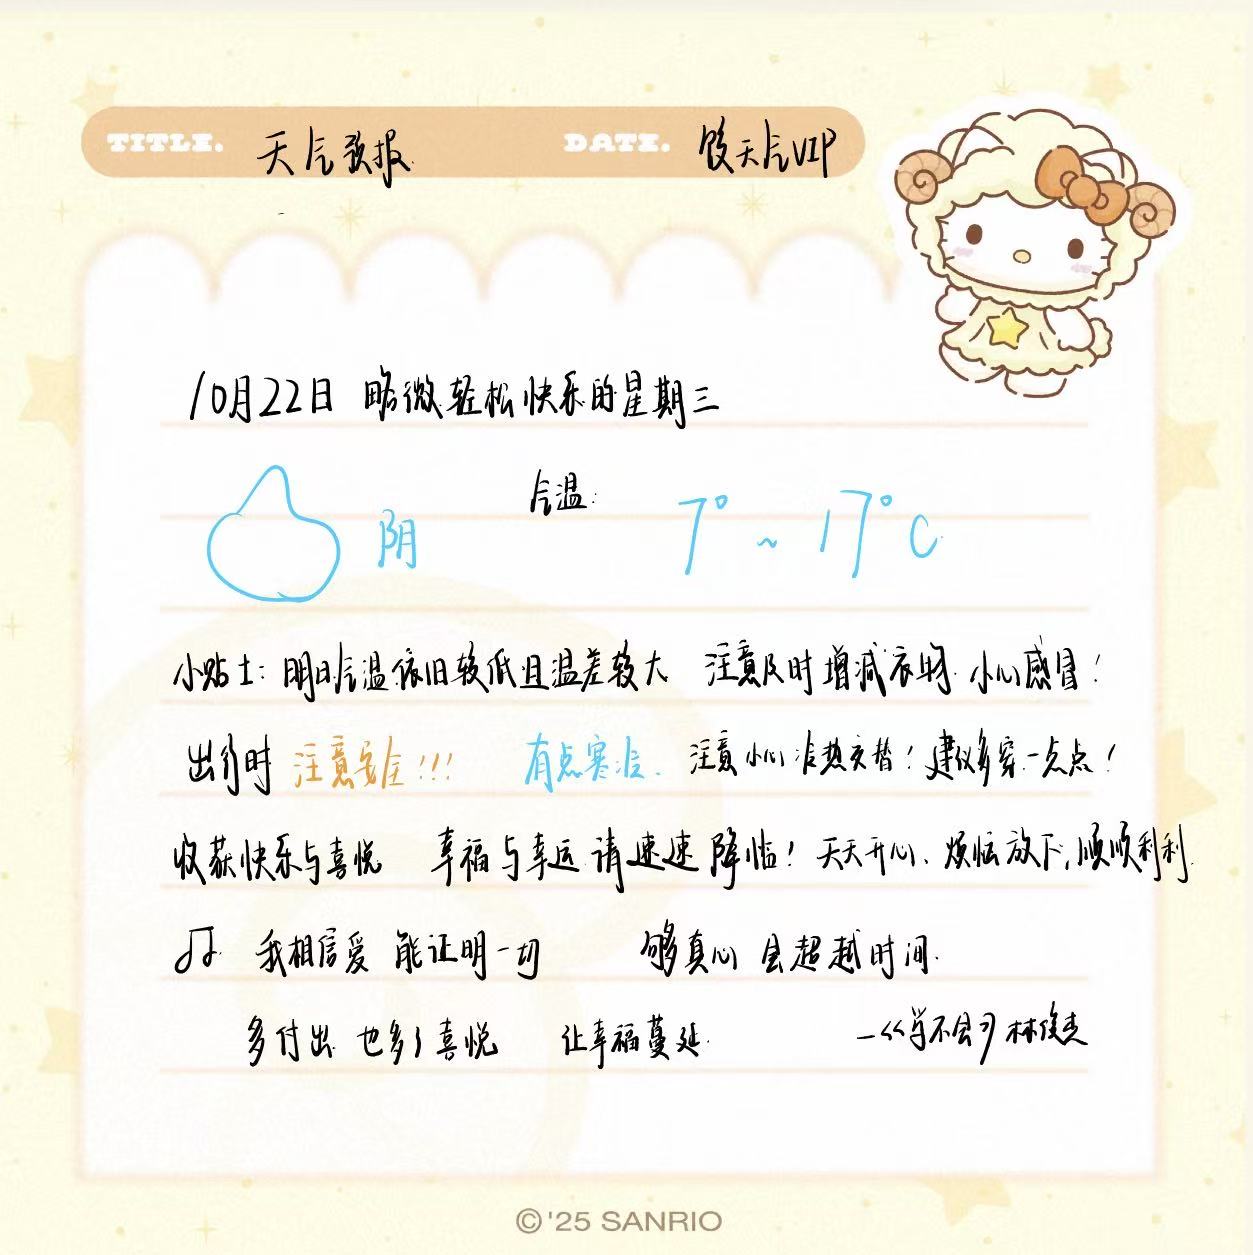 TITLE. 天气预报 DATE. 饺天气VIP
10月22日 略微轻松快乐的星期三
阴 气温: 7°~17°C
小贴士: 明日气温依旧较低且温差较大 注意及时增减衣物. 小心感冒!
出行时 注意安全!!! 有点寒冷. 注意小心冷热交替! 建议多穿一点点!
收获快乐与喜悦 幸福与幸运请速速降临! 天天开心、烦恼放下, 顺顺利利.
♫. 我相信爱 能证明一切 够真心 会超越时间.
多付出 也多了喜悦 让幸福蔓延. —《学不会》林俊杰
©'25 SANRIO